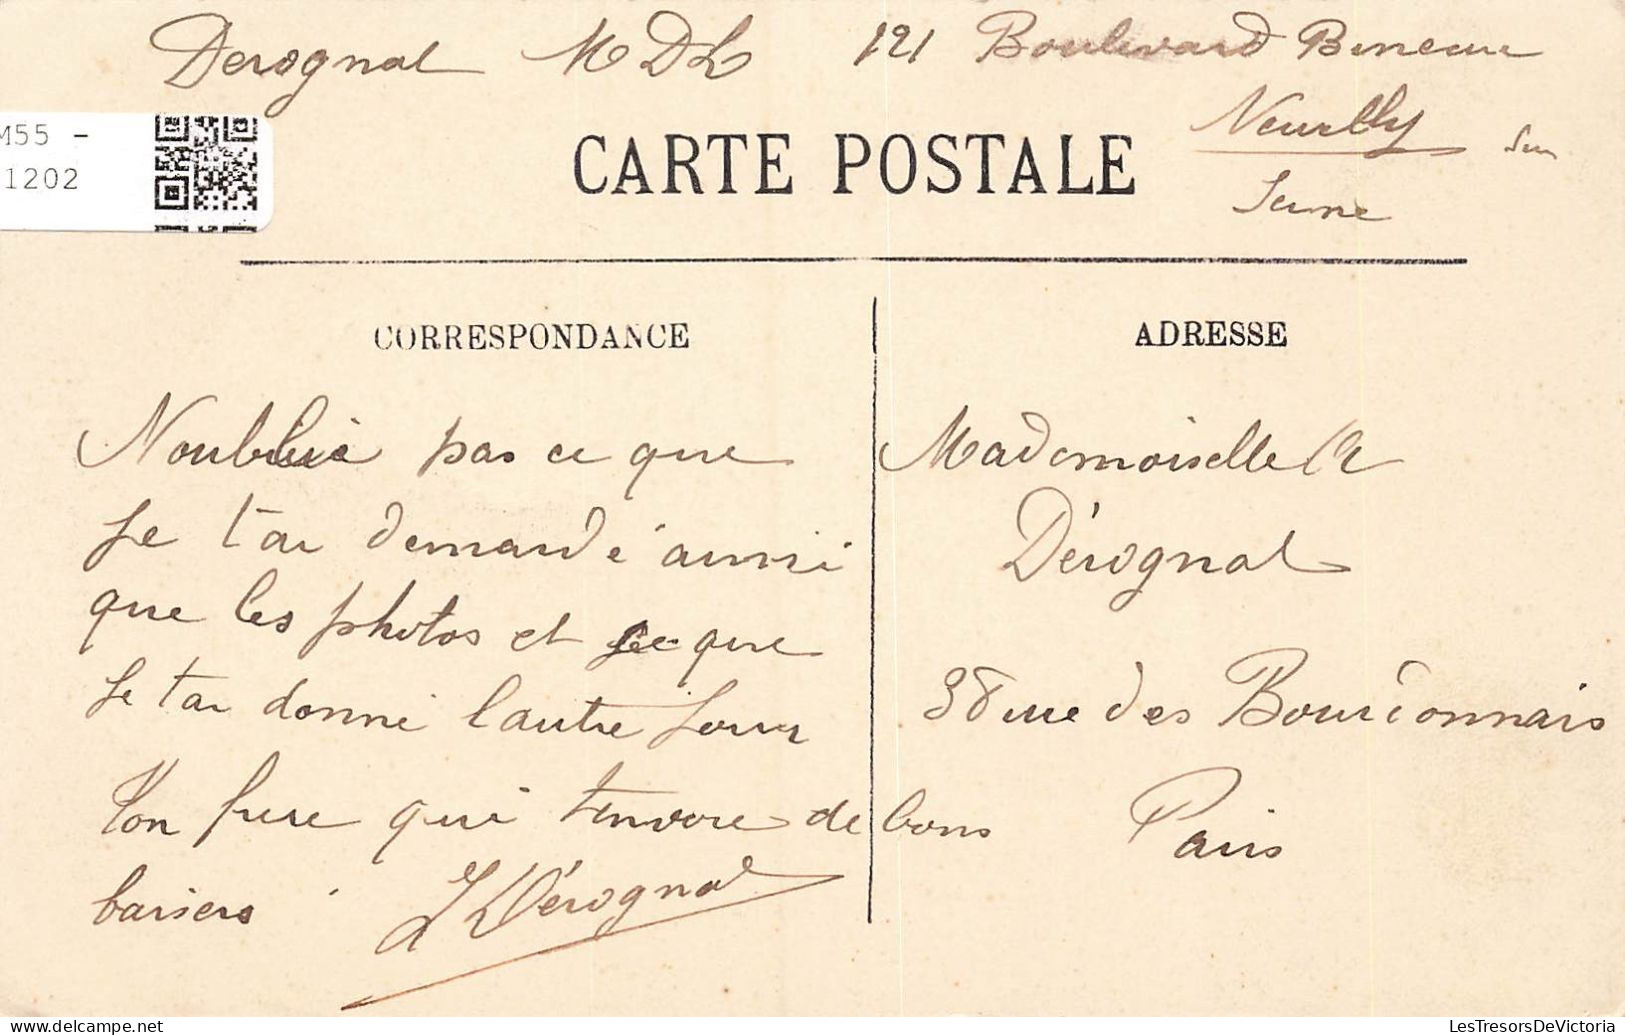 Derognat MDL 121 Boulevard Bineau
Neuilly sur
Seine
M55 -
1202
CARTE POSTALE
CORRESPONDANCE
Noublie pas ce que
Je tai demandé ainsi
que les photos et ce que
Je tai donné lautre Jour
Ton frere qui tenvoie de bons
baisers
Dérognat
ADRESSE
Mademoiselle R
Dérognat
38 rue des Bourdonnais
Paris
LesTresorsDeVictoria